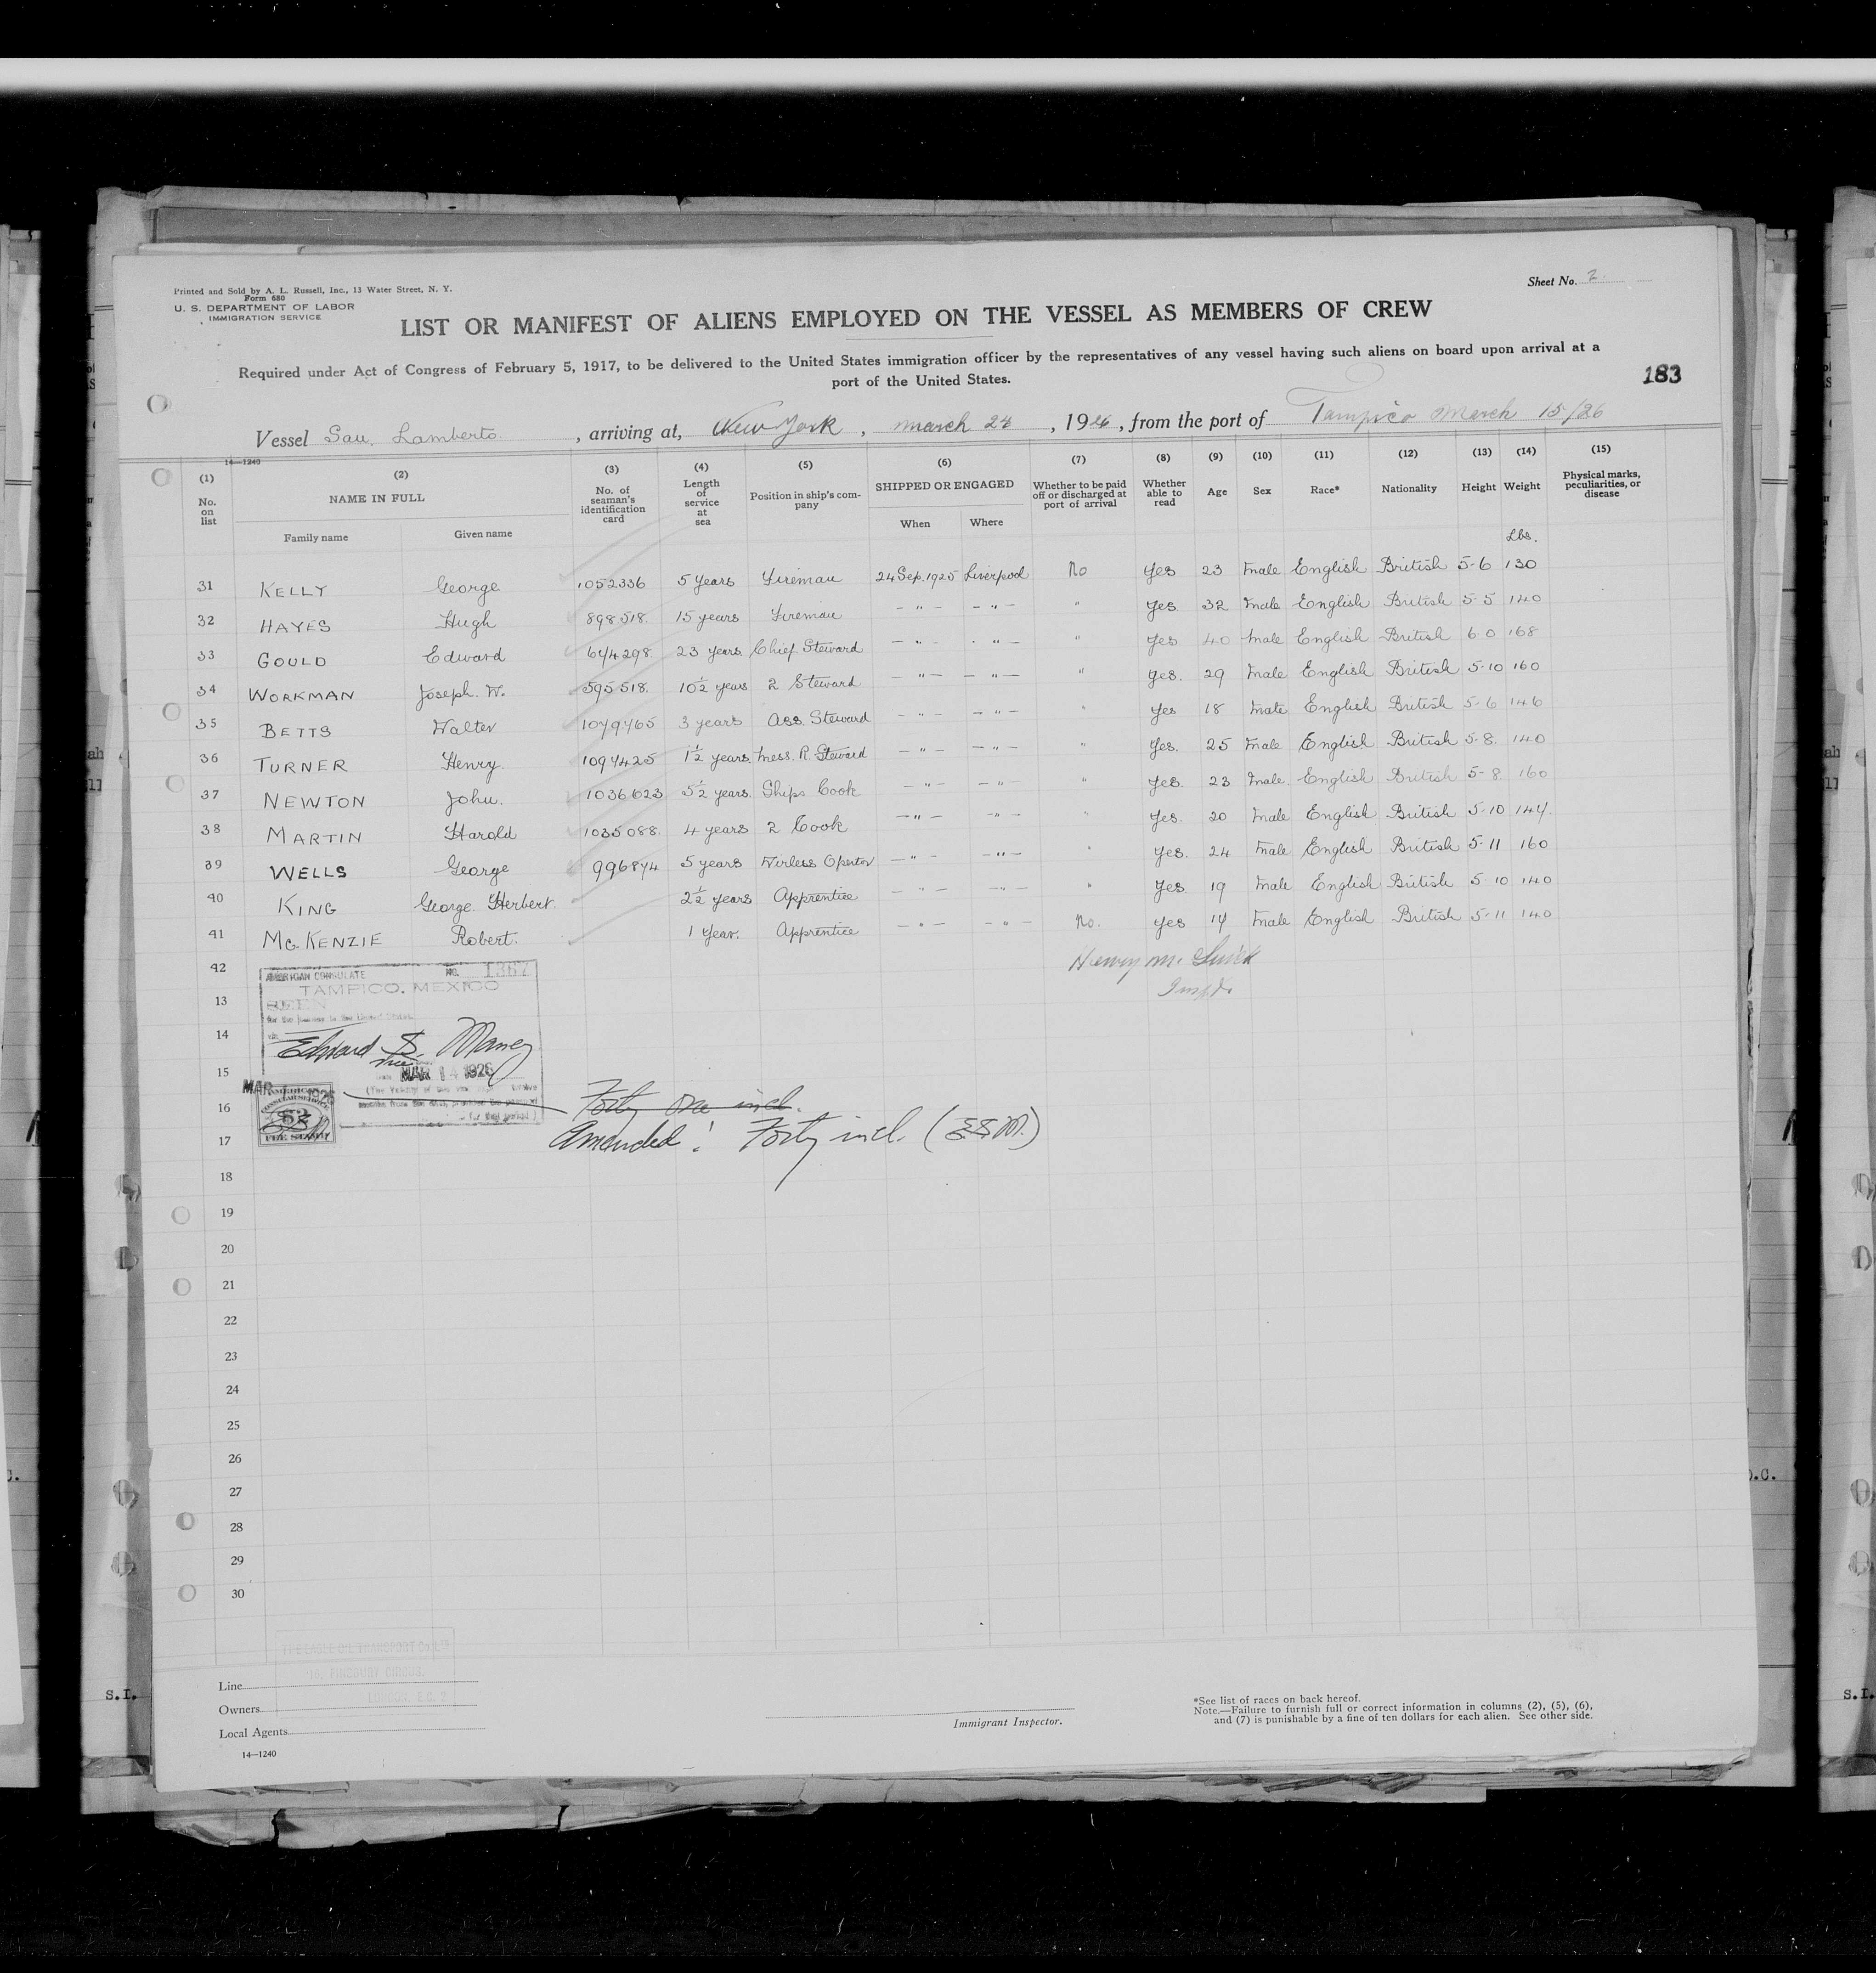 Printed and Sold by A. L. Russell, Inc., 13 Water Street, N. Y.
Form 680
U. S. DEPARTMENT OF LABOR
IMMIGRATION SERVICE
Sheet No. 2
LIST OR MANIFEST OF ALIENS EMPLOYED ON THE VESSEL AS MEMBERS OF CREW
Required under Act of Congress of February 5, 1917, to be delivered to the United States immigration officer by the representatives of any vessel having such aliens on board upon arrival at a
port of the United States.
183
Vessel San. Lamberto, arriving at, New York, March 24, 1926, from the port of Tampico March 15/26
14—1240
(1) No. on list
(2) NAME IN FULL Family name Given name
(3) No. of seaman's identification card
(4) Length of service at sea
(5) Position in ship's company
(6) SHIPPED OR ENGAGED When Where
(7) Whether to be paid off or discharged at port of arrival
(8) Whether able to read
(9) Age
(10) Sex
(11) Race*
(12) Nationality
(13) Height
(14) Weight
(15) Physical marks, peculiarities, or disease
Lbs.
31 KELLY George 1052336 5 years Fireman 24 Sep. 1925 Liverpool No Yes 23 Male English British 5-6 130
32 HAYES Hugh 898518 15 years Fireman — " — — " — " Yes 32 Male English British 5-5 140
33 GOULD Edward 644298 23 years Chief Steward — " — — " — " Yes 40 Male English British 6 0 168
34 WORKMAN Joseph. W. 595518. 10½ years 2 Steward — " — — " — " Yes. 29 Male English British 5-10 160
35 BETTS Walter 1079765 3 years Ass. Steward — " — — " — " Yes 18 Male English British 5-6 146
36 TURNER Henry. 1097425 1½ years. Mess. R. Steward — " — — " — " Yes. 25 Male English British 5-8. 140
37 NEWTON John. 1036623 5½ years. Ships Cook — " — — " — " Yes. 23 Male. English British 5-8 160
38 MARTIN Harold 1035088. 4 years 2 Cook — " — — " — " Yes. 20 Male English British 5-10 144.
39 WELLS George 996874 5 years Wirless Opertor — " — — " — " Yes. 24 Male English British 5-11 160
40 KING George. Herbert. 2½ years Apprentice — " — — " — " Yes. 19 Male English British 5 10 140
41 McKENZIE Robert. 1 Year. Apprentice — " — — " — No. Yes 17 Male English British 5-11 140
42
AMERICAN CONSULATE NO. 1367
TAMPICO. MEXICO
SEEN
Henry M.
Insp.
13
14
Edward S. Maney
Vice
15
MAR 14 1926
MAR 1926
CONSULAR SERVICE
$2
FEE STAMP
16
Forty one incl.
17
Amended: Forty incl. (ESM.)
18
19
20
21
22
23
24
25
26
27
28
29
30
THE EAGLE OIL TRANSPORT Co. Ltd
16, FINSBURY CIRCUS.
LONDON. E.C. 2
Line
Owners
Local Agents
14—1240
Immigrant Inspector.
*See list of races on back hereof.
Note.—Failure to furnish full or correct information in columns (2), (5), (6),
and (7) is punishable by a fine of ten dollars for each alien. See other side.
S.I.
S.I.